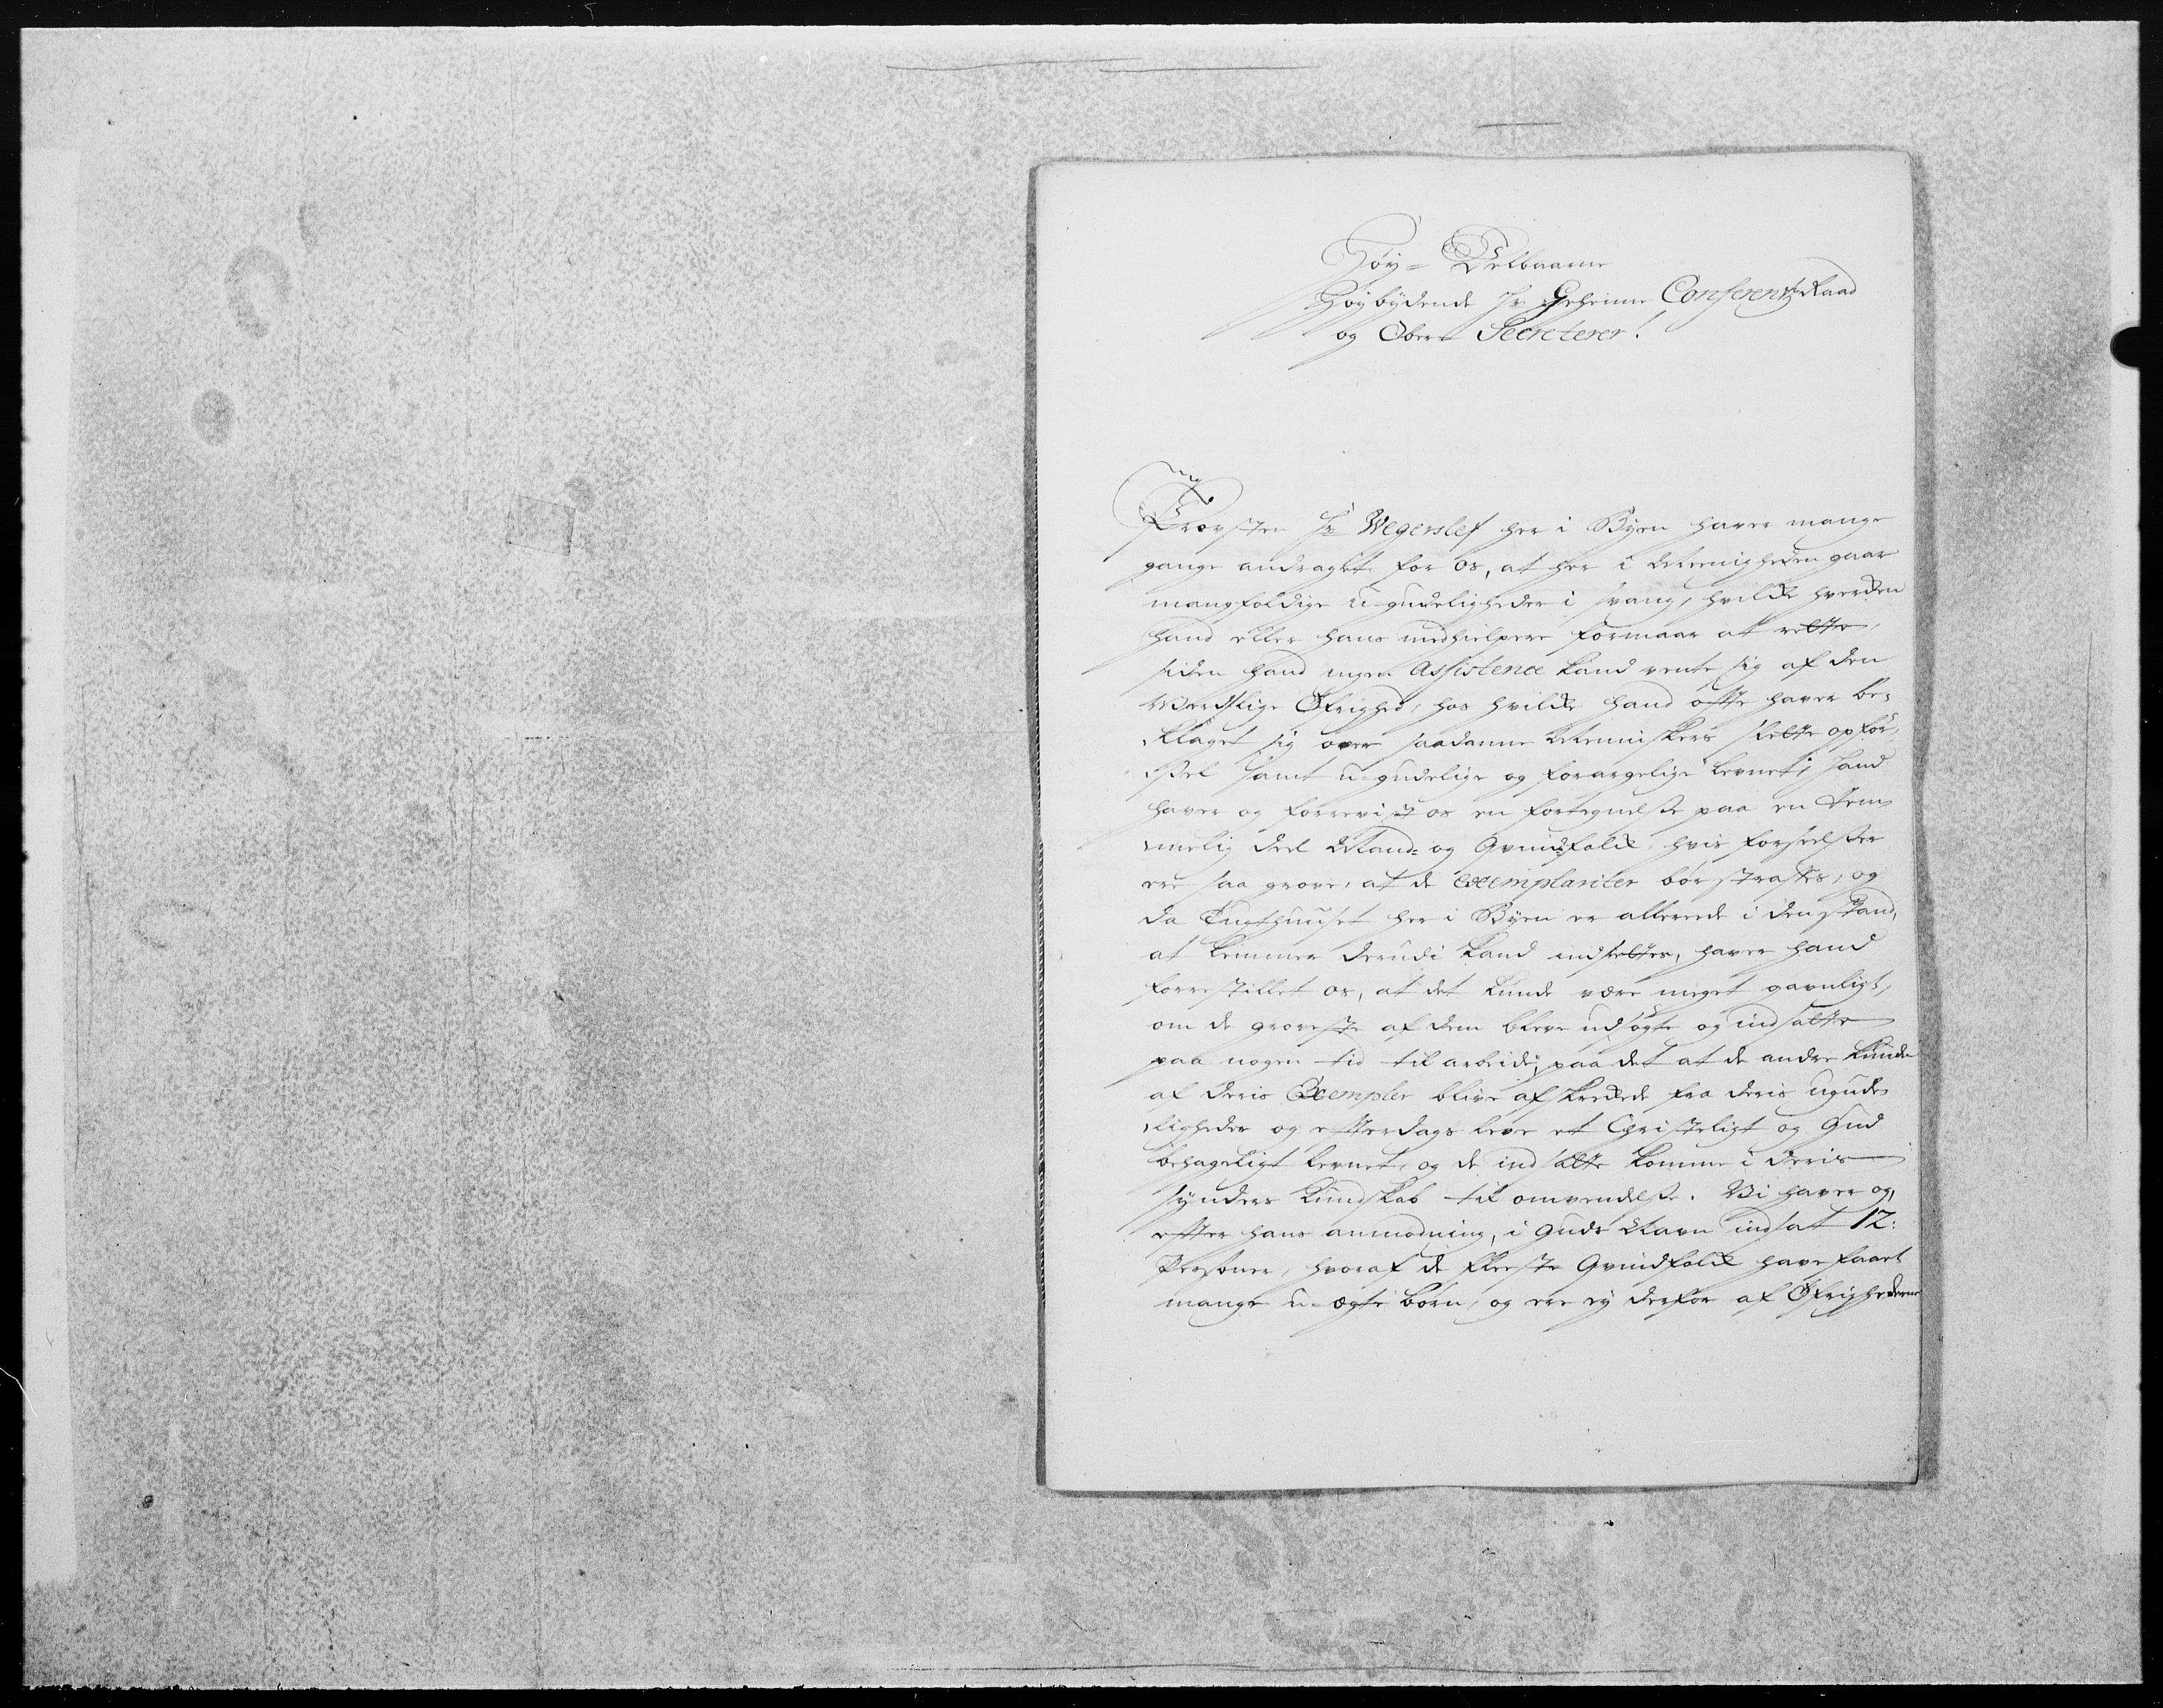 Høy- Velbaarne
Høybÿdende Hr Geheime Conferentz Raad
og Ober Secreterer!
Provsten Hr Wegerslef her i Byen haver mange
gange andraget for os, at her i Meenigheden gaar
mangfoldige u-gudeligheder i svang, hvilke hverken
hand eller hans medhielpere formaar at rette,
siden hand ingen Assistence kand vente sig af den
Verdslige Øfrighed, hos hvilke hand ofte haver be-
klaget sig over saadanne Menniskers slette opför-
sel samt u-gudelige og forargelige levnet; hand
haver og forrevist os en fortegnelse paa en tem-
melig deel Mand- og Qvindfolk, hvis forseelser
ere saa grove, at de exemplariter bör straffes, og
da Tugthuuset her i Byen er allerede i den stand,
at Lemmer derudi kand indsettes, haver hand
forrestillet os, at det kunde være meget gavnligt,
om de groveste af dem bleve udsøgte og indsatte
paa nogen tid til arbeide; paa det at de andre kunde
af deris Exempler blive afskrekkede fra deris ugude-
ligheder og efterdags leve et Christeligt og Gud
behageligt levnet, og de indsatte komme i deris
synders kundskab til omvendelse. Vi haver og,
efter hans anmodning, i Guds Navn indsat 12:
Persohner, hvoraf de fleeste Qvindfolk have faaet
mange u-ægte børn, og ere ey derfor af Øfrighederne